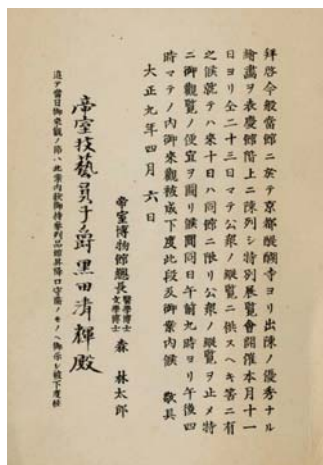 拜啓今般當館ニ於テ京都醍醐寺ヨリ出陳ノ優秀ナル
繪畫ヲ表慶館階上ニ陳列シ特別展覽會開催本月十一
日ヨリ仝二十三日マテ公衆ノ縱覽ニ供スヘキ筈ニ有
之候就テハ來十日ハ同館ニ限リ公衆ノ縱覽ヲ止メ特
ニ御觀覽ノ便宜ヲ圖リ候間同日午前九時ヨリ午後四
時マテノ內御來觀被成下度此段及御案內候 敬具
大正九年四月六日
帝室博物館總長醫學博士文學博士森林太郎
帝室技藝員子爵黑田淸輝殿
追テ當日御來觀ノ節ハ此案內狀御持參列品館昇降口守衞ノモノヘ御示シ被下度候